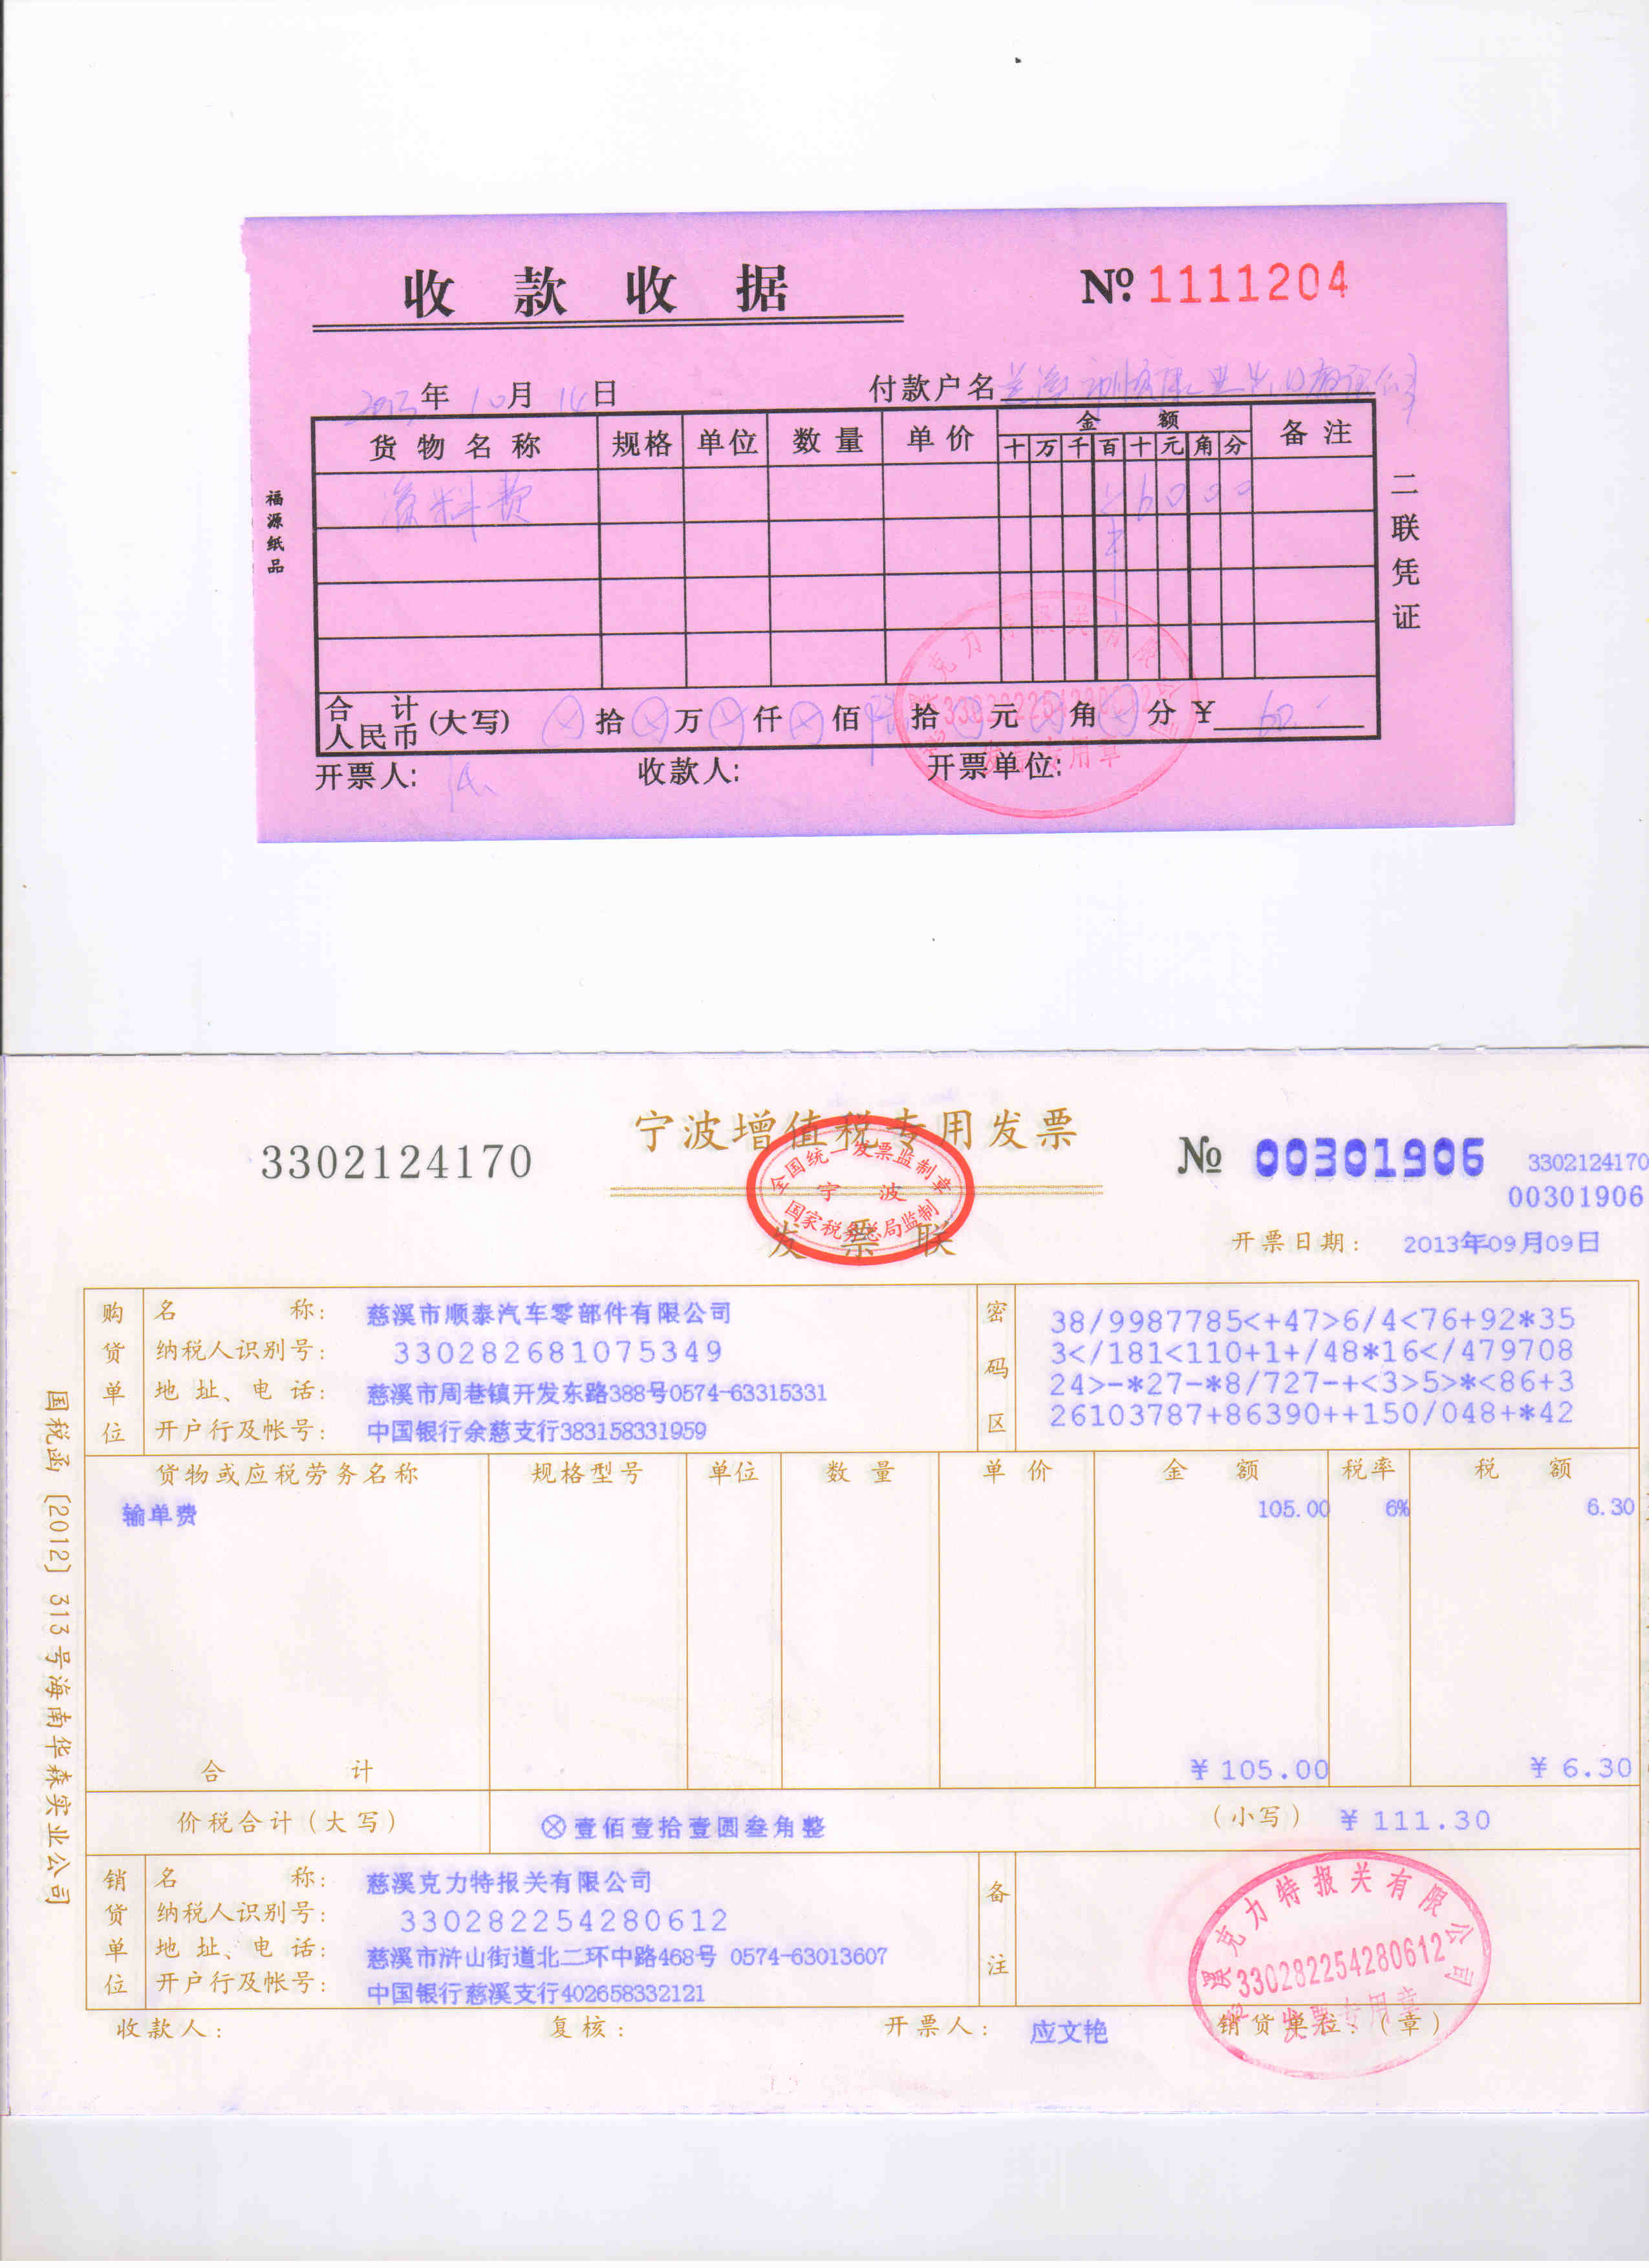 收款收据
№ 1111204
2013年 10月 14日
付款户名
货物名称 规格 单位 数量 单价 金额 备注
十 万 千 百 十 元 角 分
资料费 ¥6000
合计人民币(大写) ⊗拾⊗万⊗仟⊗佰陆拾 元 角 分 ¥ 60.-
开票人: 收款人: 开票单位:
福源纸品
二联凭证
克力特报关有限公司
发票专用章
3302124170
宁波增值税专用发票
发票联
全国统一发票监制章
宁波
国家税务总局监制
№ 00301906
3302124170
00301906
开票日期: 2013年09月09日
购货单位
名称: 慈溪市顺泰汽车零部件有限公司
纳税人识别号: 330282681075349
地址、电话: 慈溪市周巷镇开发东路388号0574-63315331
开户行及帐号: 中国银行余慈支行383158331959
密码区
38/9987785<+47>6/4<76+92*35
3</181<110+1+/48*16</479708
24>-*27-*8/727-+<3>5>*<86+3
26103787+86390++150/048+*42
货物或应税劳务名称 规格型号 单位 数量 单价 金额 税率 税额
输单费 105.00 6% 6.30
合计 ¥105.00 ¥6.30
价税合计(大写) ⊗壹佰壹拾壹圆叁角整 (小写) ¥111.30
销货单位
名称: 慈溪克力特报关有限公司
纳税人识别号: 330282254280612
地址、电话: 慈溪市浒山街道北二环中路468号 0574-63013607
开户行及帐号: 中国银行慈溪支行402658332121
备注
慈溪克力特报关有限公司
330282254280612
发票专用章
收款人: 复核: 开票人: 应文艳 销货单位:(章)
国税函〔2012〕313号海南华森实业公司